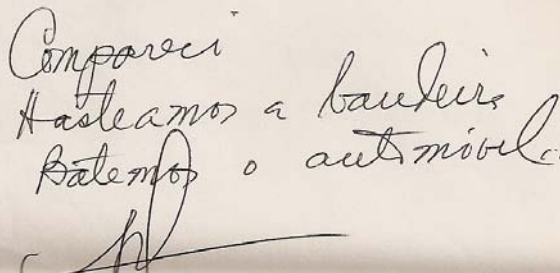 Compareci
Hasteamos a bandeira
Batemos o automóvel.